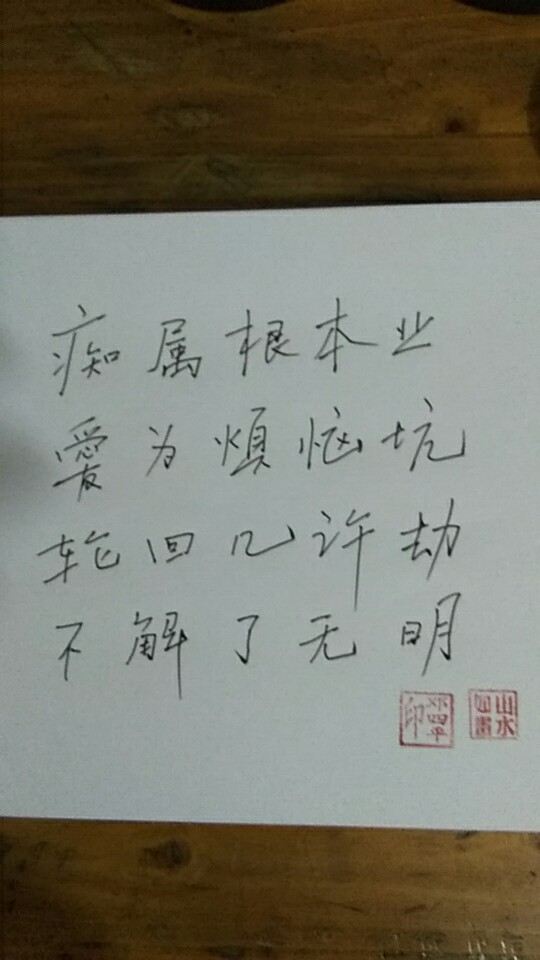 痴属根本业
愛为煩恼坑
轮回几许劫
不解了无明
邓四平印
山水如畫